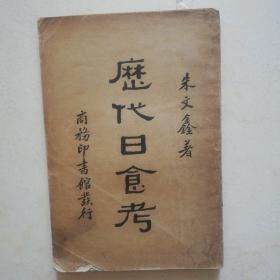 朱文鑫著
歷代日食考
商務印書館發行